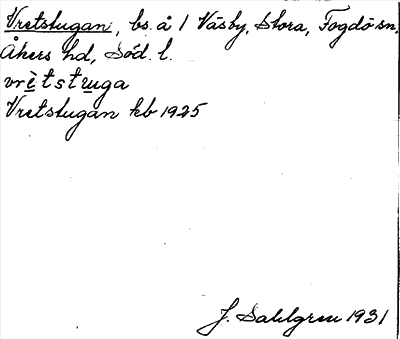 Vretstugan, bs. å 1 Väsby, Stora, Fogdö sn,
Åkers hd, Söd. l.
vrètstuga
Vretstugan kb 1925
J. Sahlgren 1931